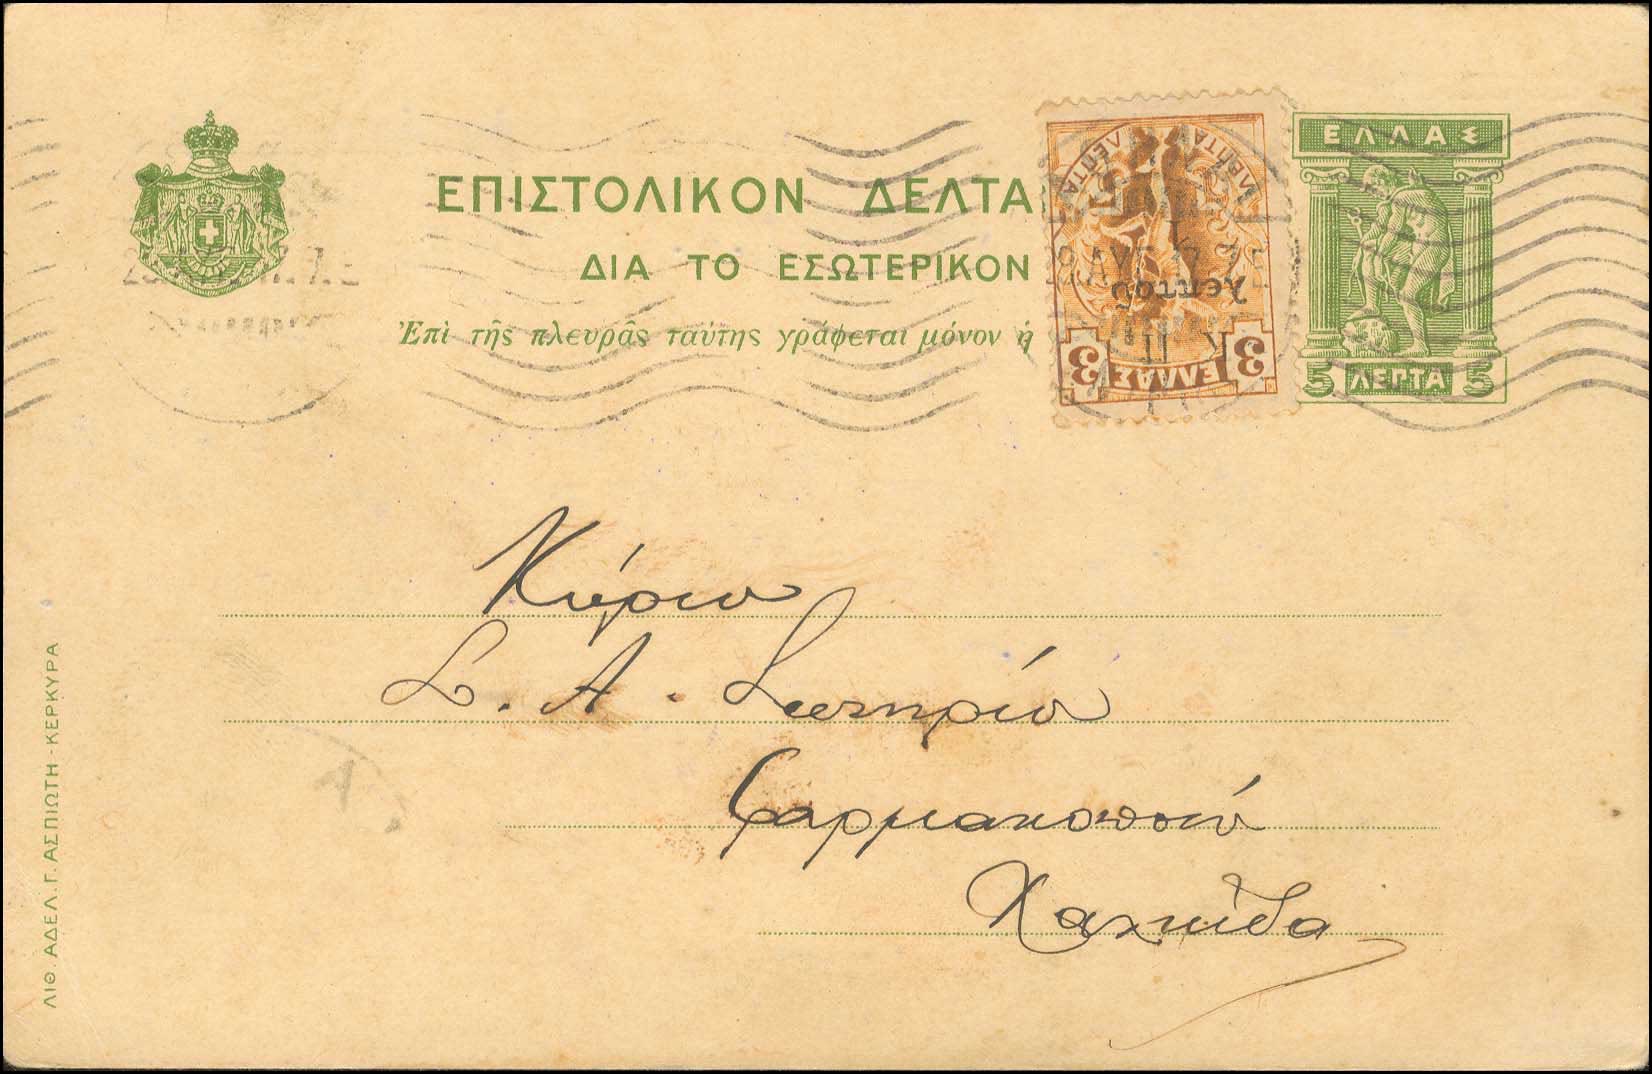 ΕΛΛΑΣ
ΕΠΙΣΤΟΛΙΚΟΝ ΔΕΛΤΑ
ΔΙΑ ΤΟ ΕΣΩΤΕΡΙΚΟΝ
Ἐπὶ τῆς πλευρᾶς ταύτης γράφεται μόνον ἡ
5 ΛΕΠΤΑ 5
ΛΕΠΤΑ ΛΕΠΤΑ
λεπτοῦ
3 ΕΛΛΑΣ 3
Κύριον
Σ. Α. Σωτηρίου
Φαρμακοποιόν
Χαλκίδα
ΛΙΘ. ΑΔΕΛ. Γ. ΑΣΠΙΩΤΗ - ΚΕΡΚΥΡΑ